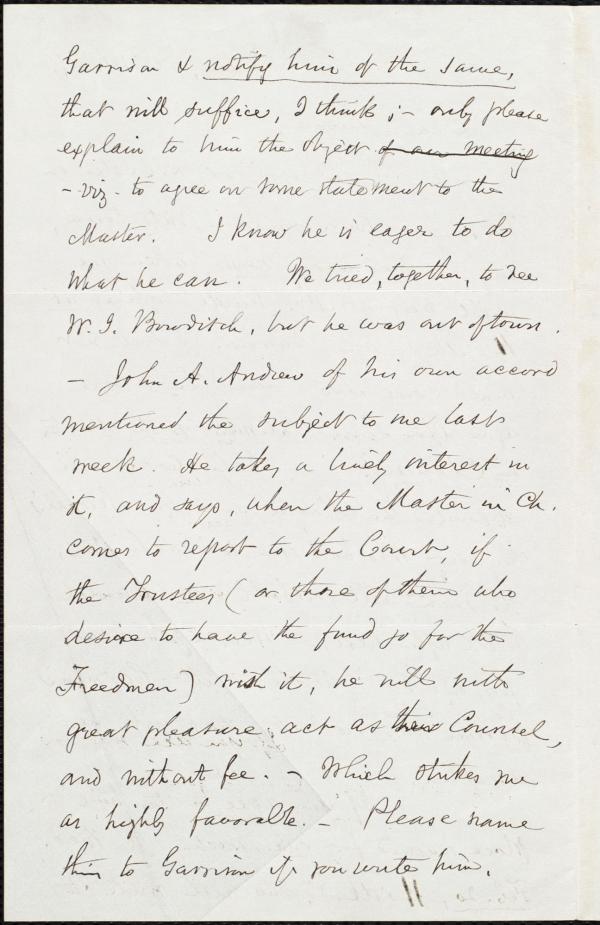 Garrison & notify him of the same,
that will suffice, I think ;- only please
explain to him the object of our meeting
- viz - to agree on some statement to the
Master. I know he is eager to do
what he can. We tried, together, to see
W. I. Bowditch, but he was out of town.
- John A. Andrew of his own accord
mentioned the subject to me last
week. He takes a lively interest in
it, and says, when the Master in Ch.
comes to report to the Court, if
the Trustees (or those of them who
desire to have the fund go for the
Freedmen) wish it, he will with
great pleasure act as their Counsel,
and without fee. - Which strikes me
as highly favorable. - Please name
this to Garrison if you write him.